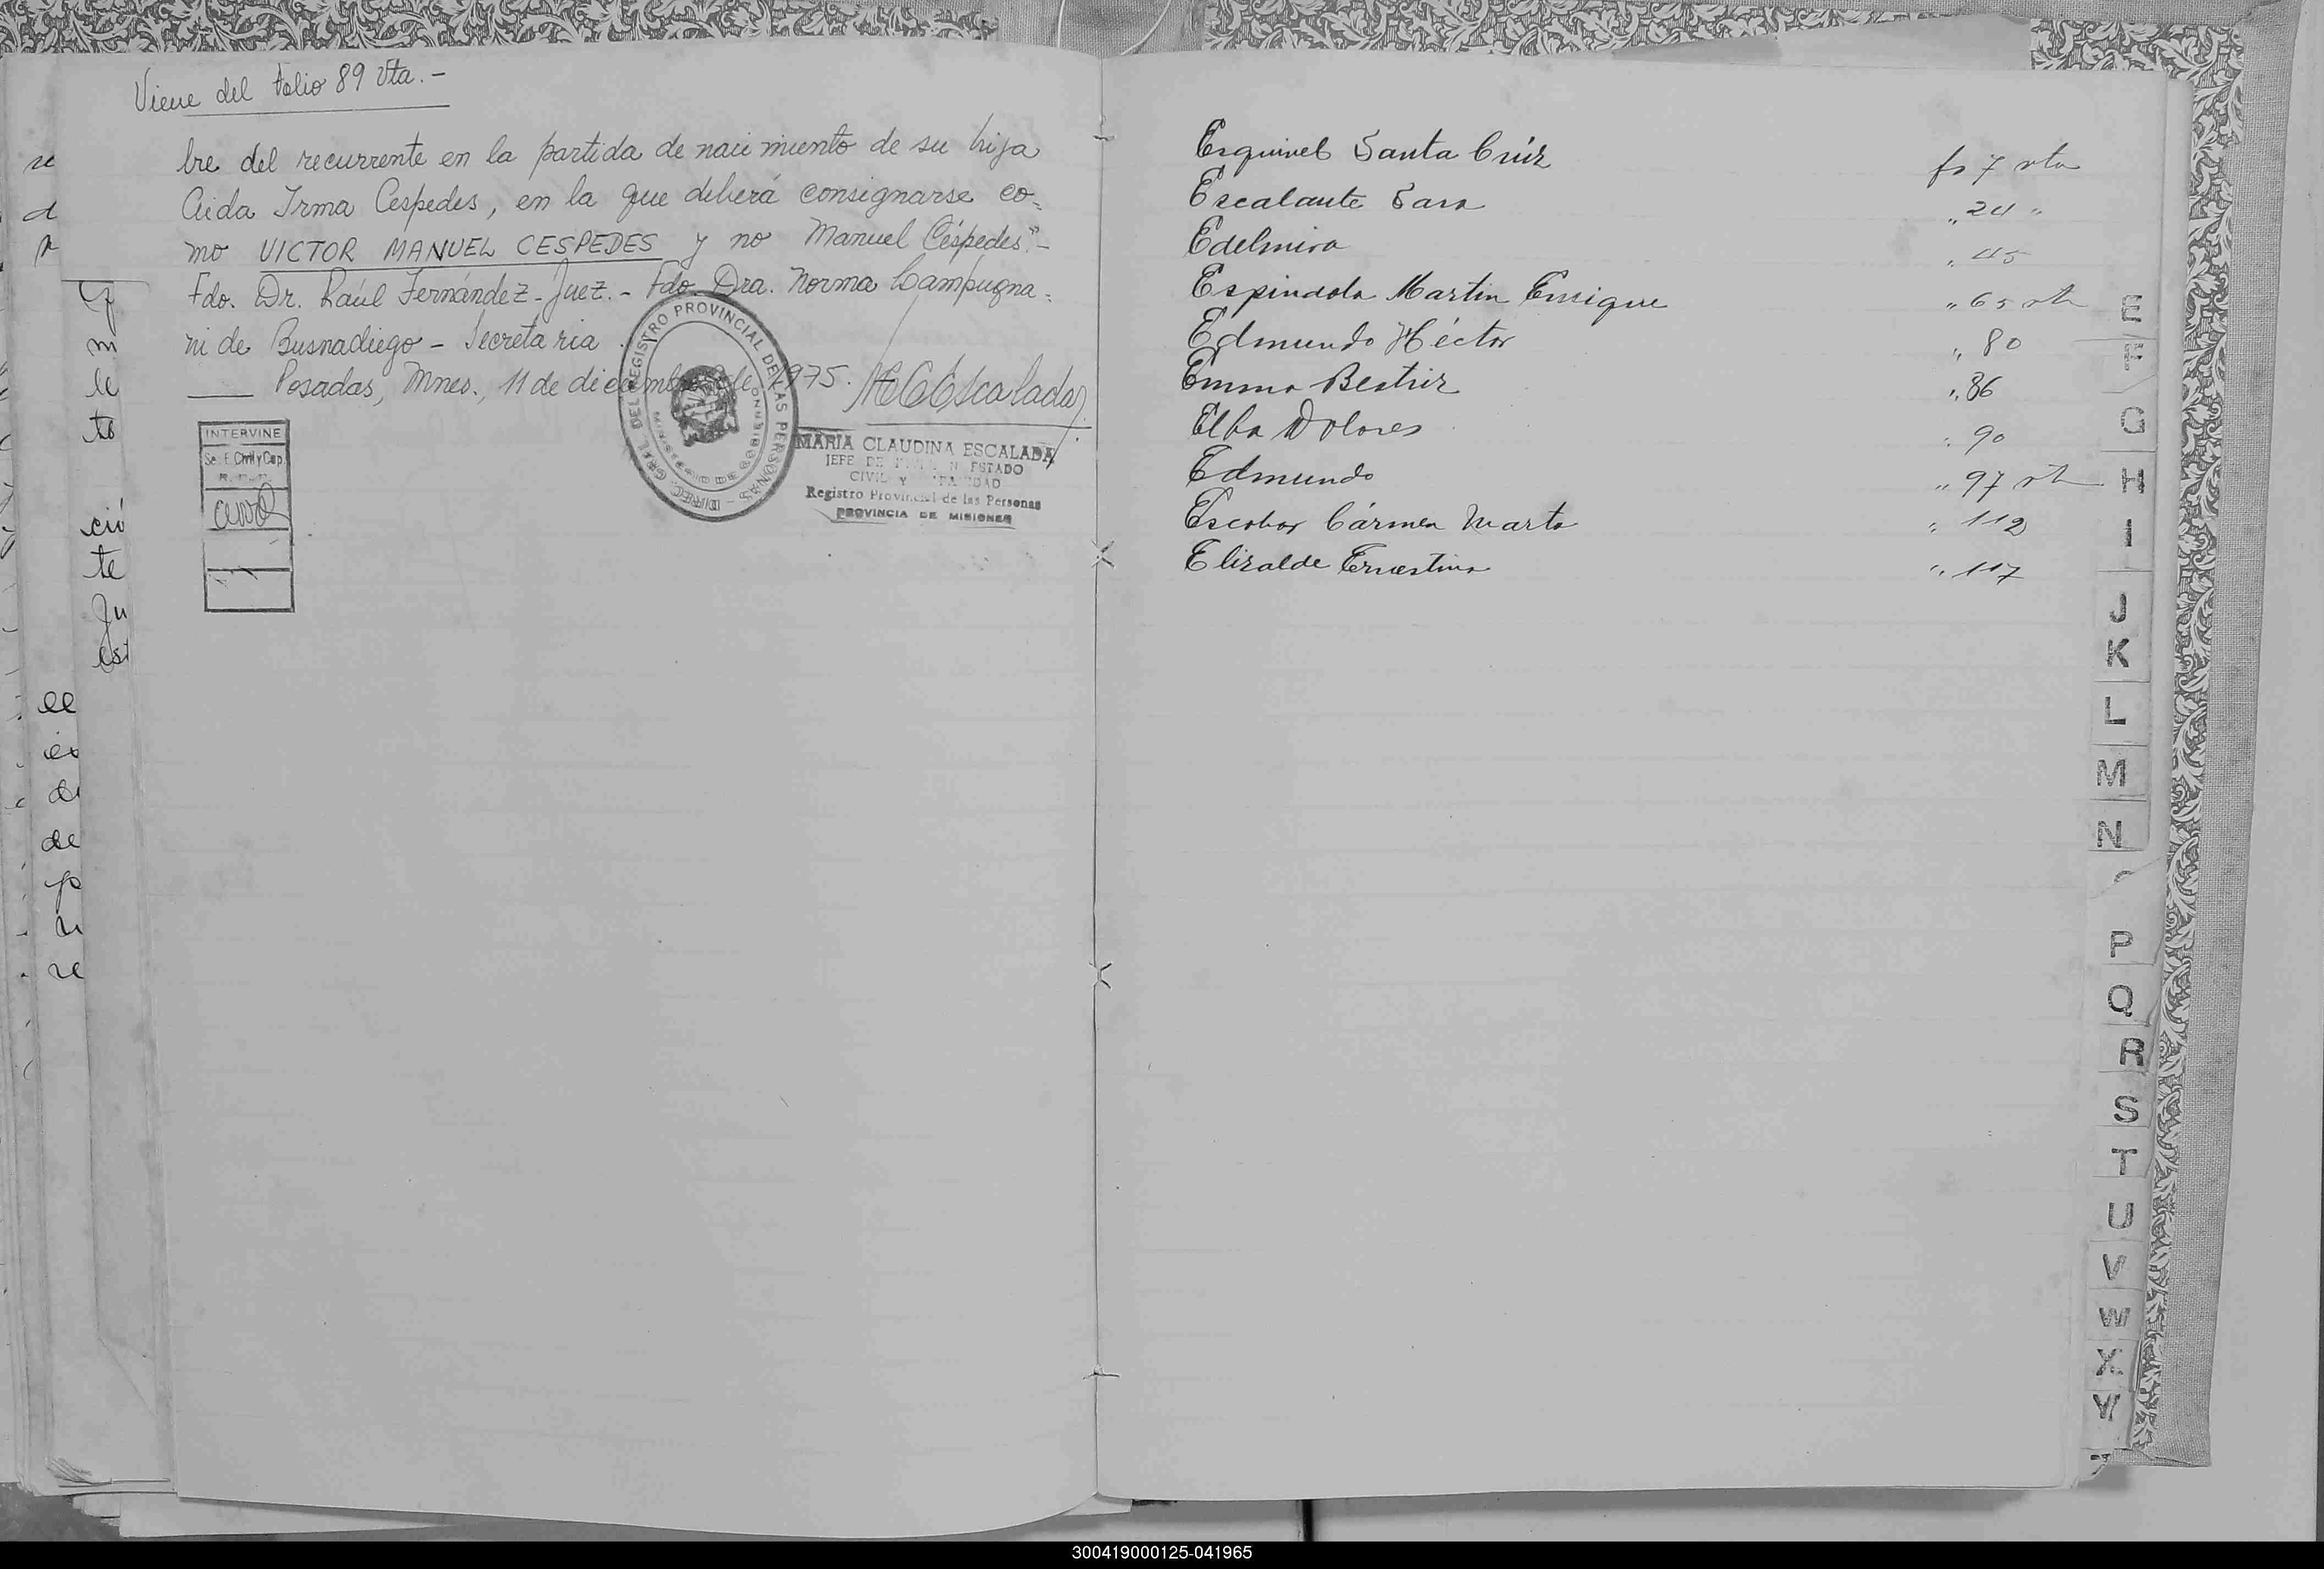 Viene del folio 89 Vta. -
bre del recurrente en la partida de naci miento de su hija
Aida Irma Cespedes, en la que deberá consignarse co-
mo VICTOR MANUEL CESPEDES y no Manuel Céspedes". -
Fdo. Dr. Raúl Fernández - Juez. - Fdo. Dra. Norma Campugna-
ni de Busnadiego - Secretaria.
Posadas, Mnes., 11 de diciembre de 1975.
MCEscalada
INTERVINE
Sec. E. Civil y Cap.
DIREC. GRAL. DEL REGISTRO PROVINCIAL DE LAS PERSONAS
MINISTERIO DE GOBIERNO
MARIA CLAUDINA ESCALADA
JEFE DE ESTADO
CIVIL Y
Registro Provincial de las Personas
PROVINCIA DE MISIONES
Esquivel Santa Crúz fs 7 vta
Escalante Sara " 24 "
Edelmira " 45
Espindola Martin Enrique " 65 vta
Edmundo Héctor " 80
Emma Beatriz " 86
Elba Dolores " 90
Edmundo " 97 vta
Escobar Cármen Marta " 112
Elizalde Ernestina " 117
E
F
G
H
I
J
K
L
M
N
P
Q
R
S
T
U
V
W
X
Y
re
d
m
le
to
ció
te
Ju
est
ee
de
de
p
re
300419000125-041965